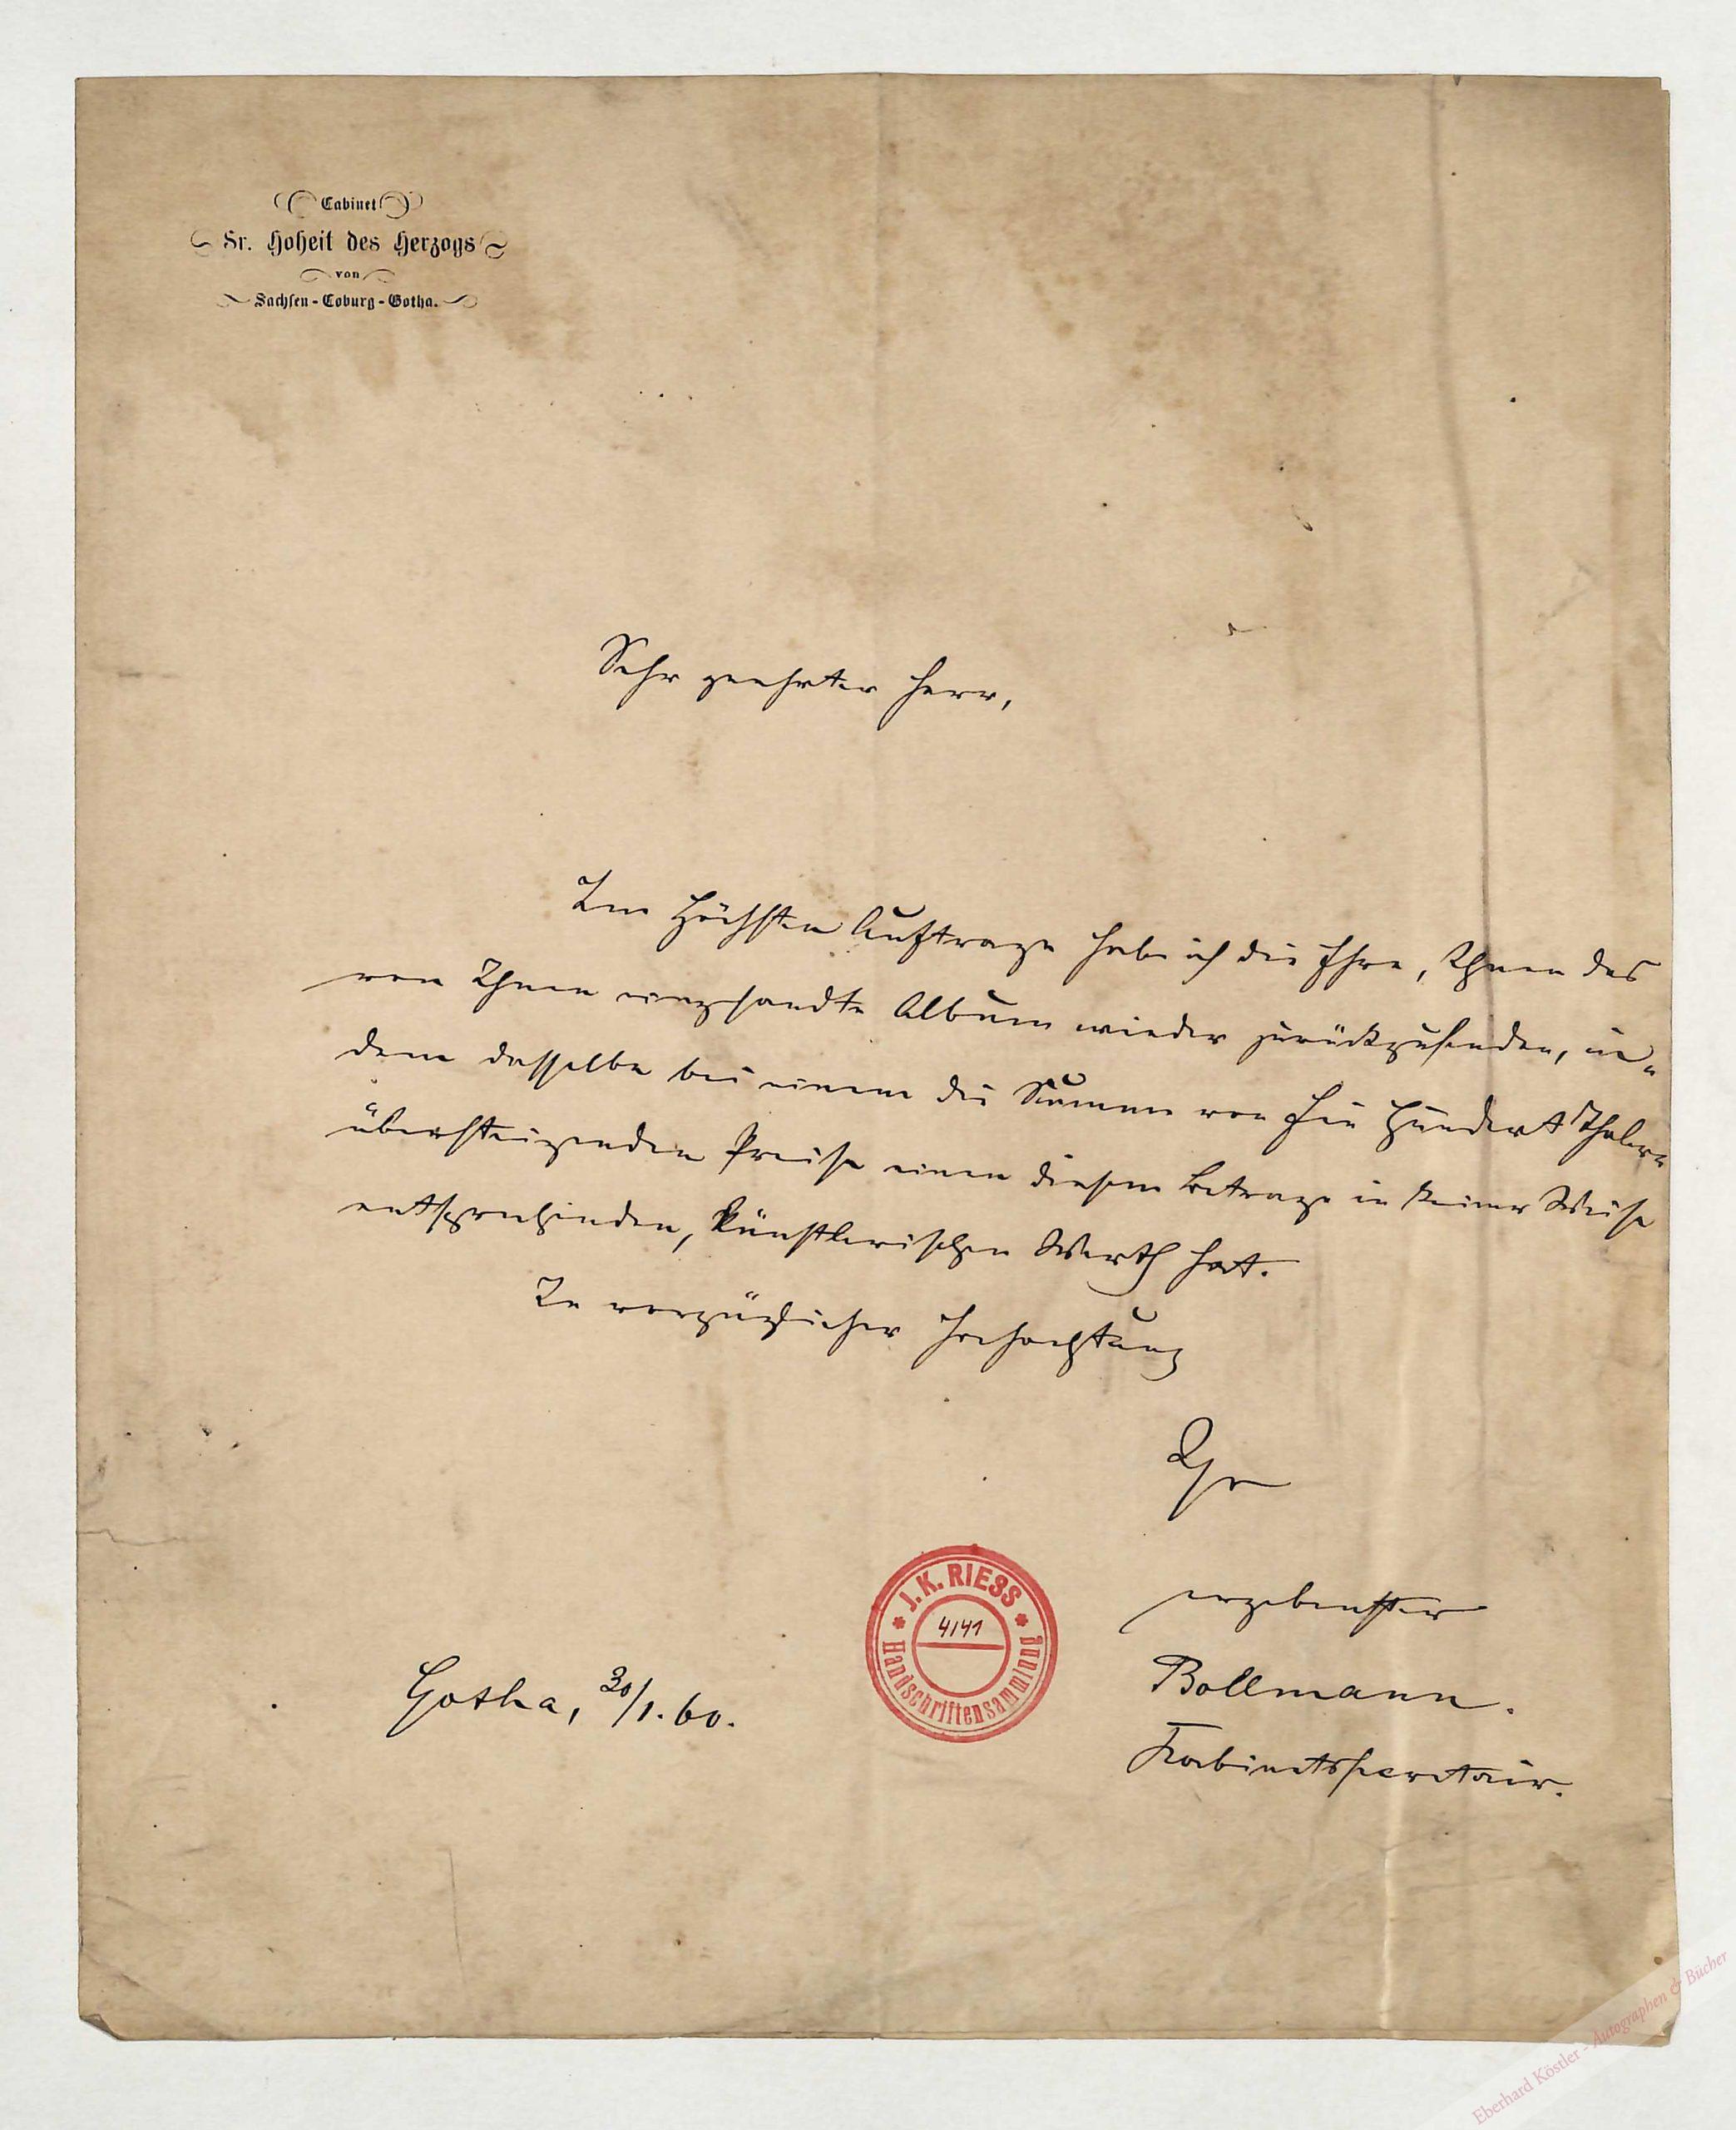 Cabinet
Sr. Hoheit des Herzogs
von
Sachsen-Coburg-Gotha.
Sehr geehrter Herr,
Im Höchsten Auftrage habe ich die Ehre, Ihnen das
von Ihnen eingesandte Album wieder zurückzusenden, in-
dem dasselbe bei einem die Summe von Ein Hundert Thalern
übersteigenden Preise einen diesem Betrage in keiner Weise
entsprechenden, künstlerischen Werth hat.
In vorzüglicher Hochachtung
Ihr
ergebenster
Bollmann.
Kabinetssecretair.
Gotha, 30/1. 60.
J. K. RIESS
4141
Handschriftensammlung
Eberhard Köstler - Autographen & Bücher